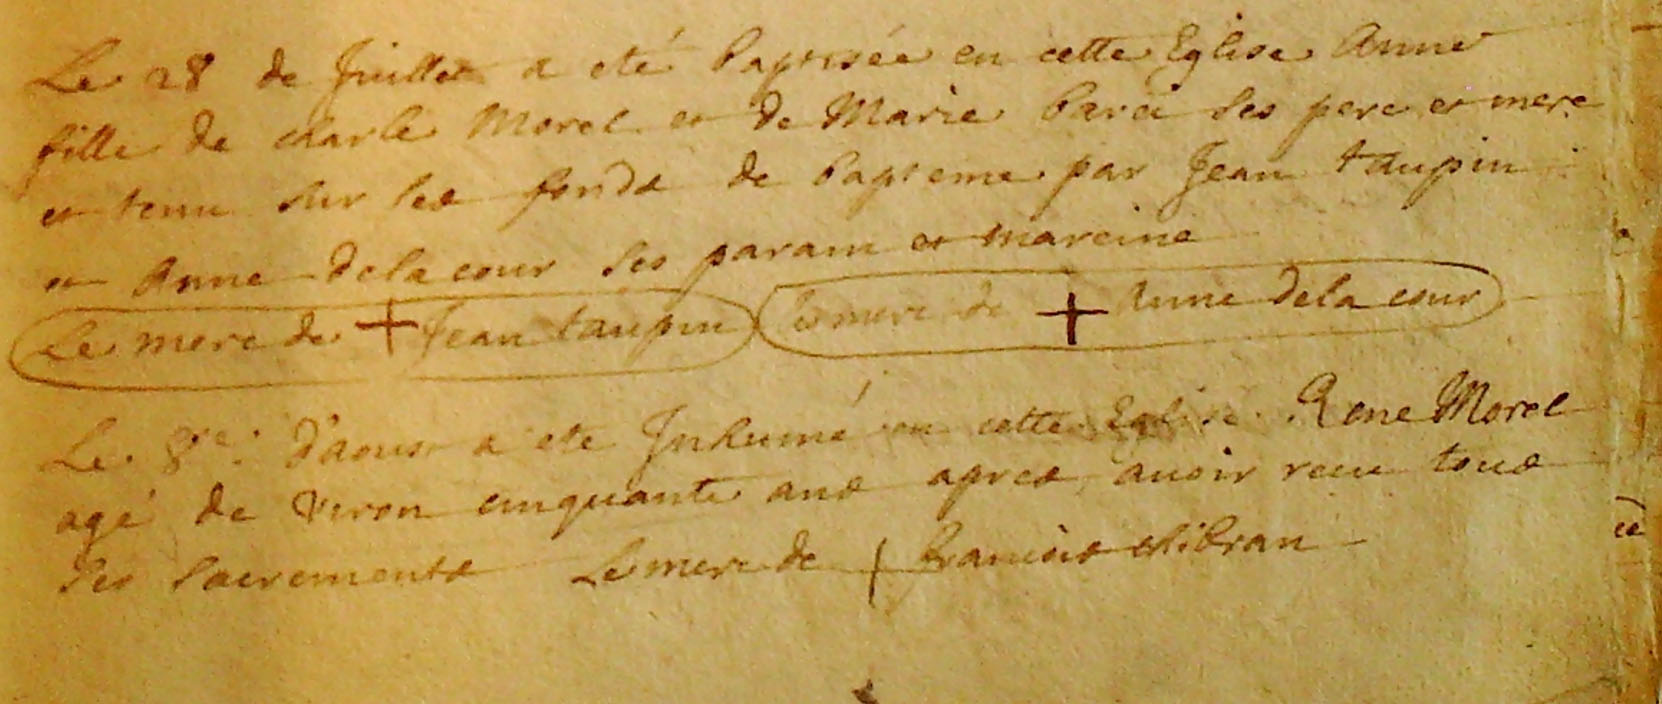 Le 28 de Juillet a eté baptisée en cette Eglise Anne
fille de charle Morel et de Marie ses pere et mere
et tenu sur les fonds de bapteme par Jean taupin
et Anne delacour ses parain et mareine
Le merc de + Jean taupin Le merc de + Anne dela cour
Le 8e. d'aoust a ete Inhumé en cette Eglise Rene Morel
agé de viron cinquante ans apres avoir receu tous
ses sacrements Le merc de francois
ce